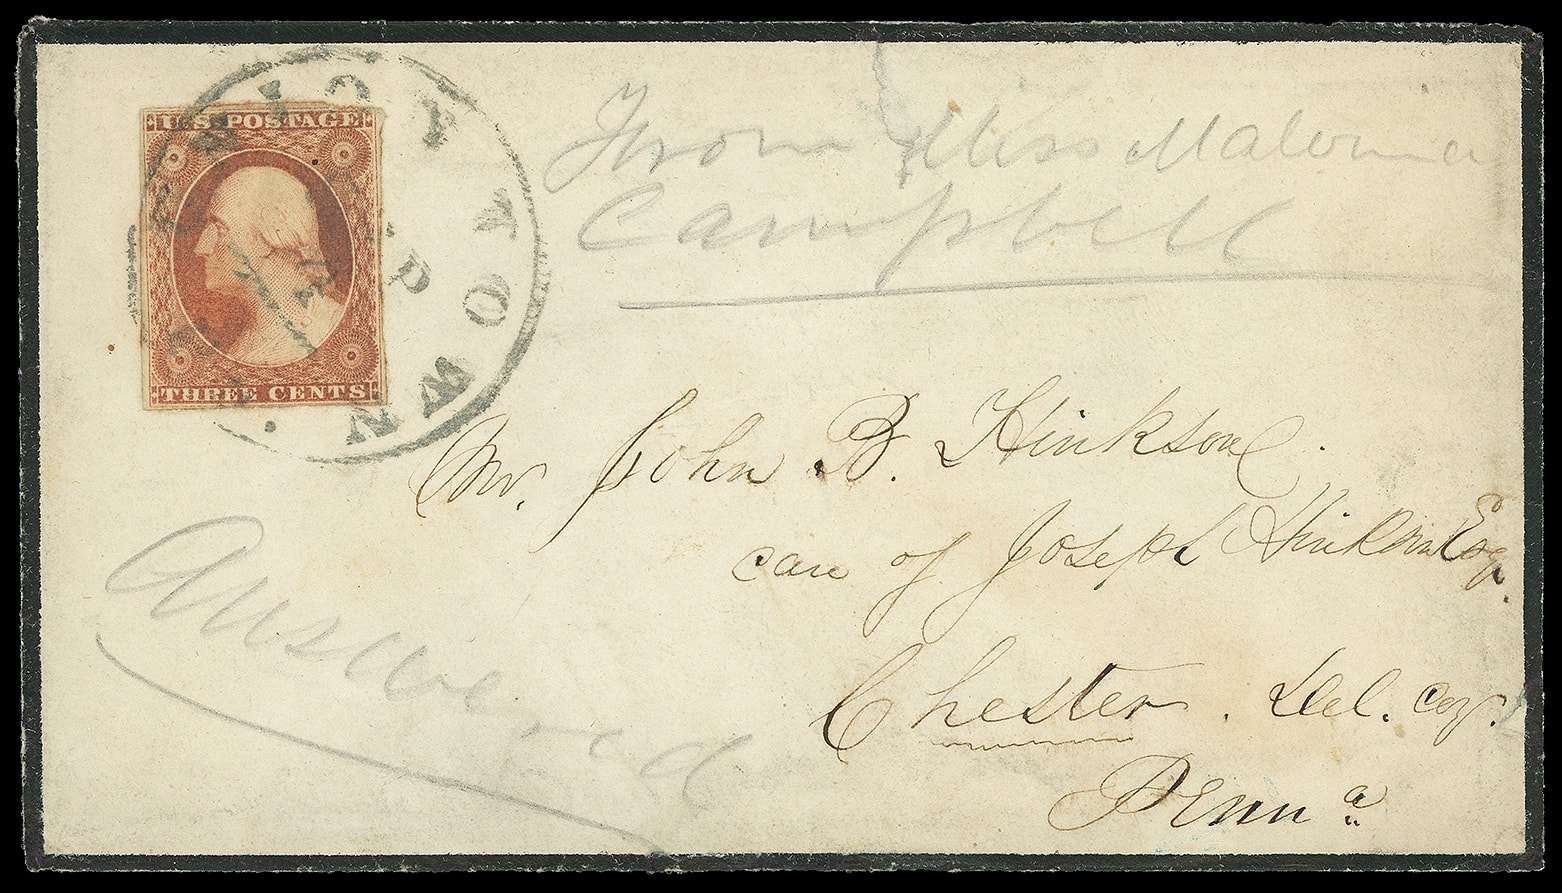 U.S. POSTAGE
THREE CENTS
TOWN
From Miss Malvina
Campbell
Mr. John B. Hinkson
care of Joseph Hinkson Esq.
Chester. Del. Coy.
Penna
Answered